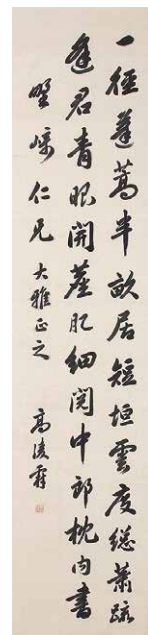 一徑蓬蒿半畝居短垣雲度總蕭疏
逢君青眼開 細閱中郎枕内書
仁兄大雅正之 高凌霨